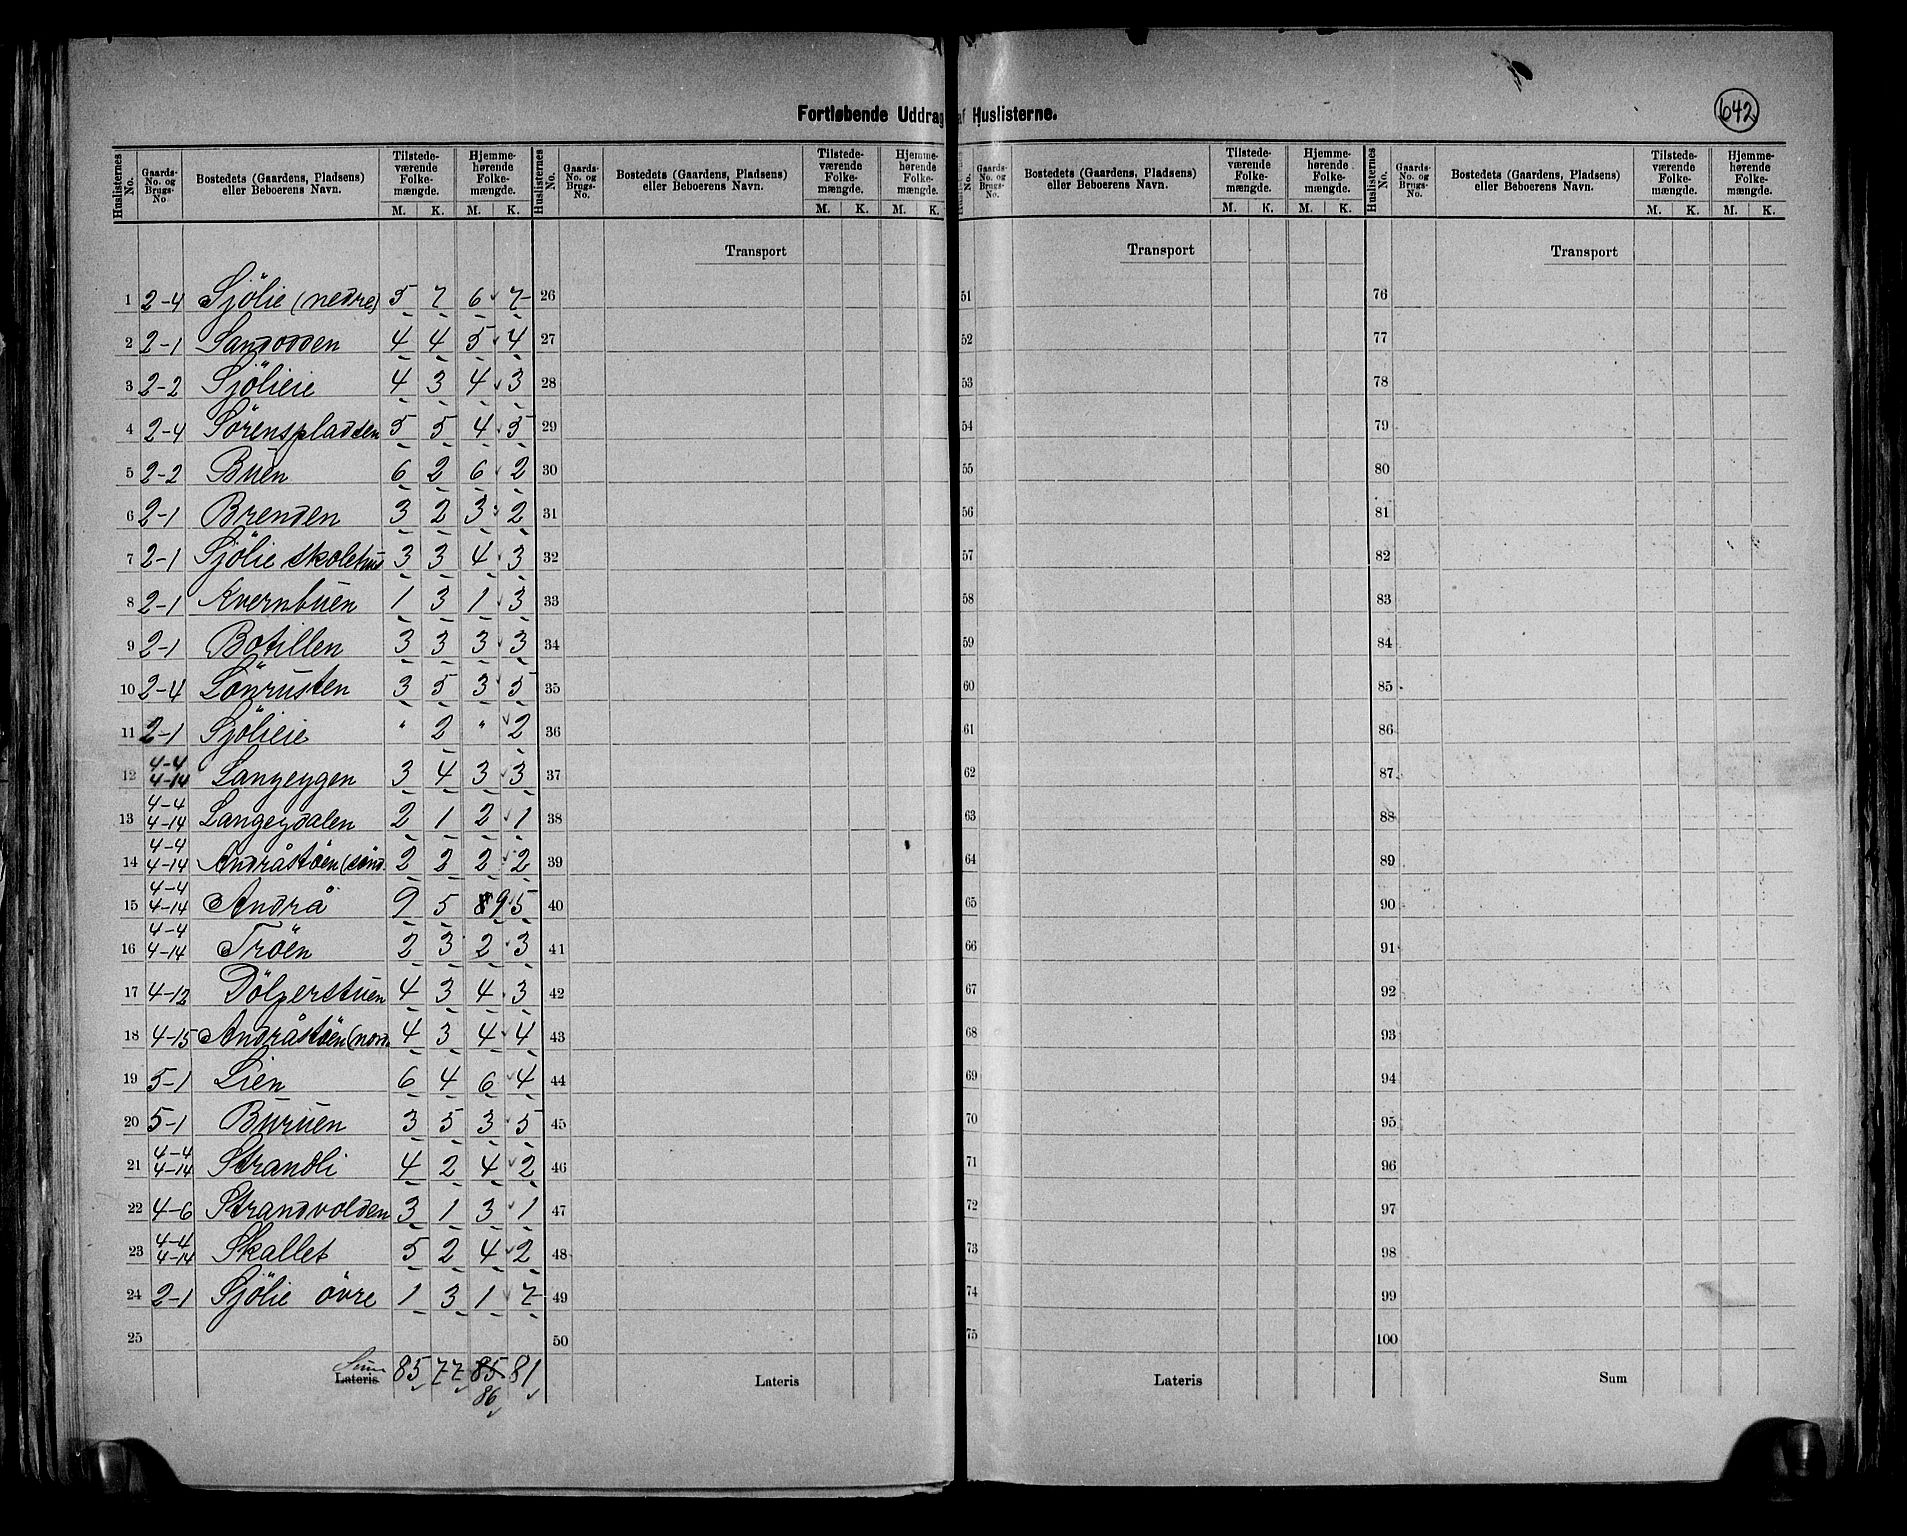 Fortløbende Uddrag af Huslisterne.
642
Huslisternes No. Gaards-No. og Brugs-No Bostedets (Gaardens, Pladsens) eller Beboerens Navn. Tilstedeværende Folkemængde. M. K. Hjemmehørende Folkemængde. M. K.
Huslisternes No. Gaards-No. og Brugs-No. Bostedets (Gaardens, Pladsens) eller Beboerens Navn. Tilstedeværende Folkemængde. M. K. Hjemmehørende Folkemængde. M. K.
No. Gaards-No. og Brugs-No. Bostedets (Gaardens, Pladsens) eller Beboerens Navn. Tilstedeværende Folkemængde. M. K. Hjemmehørende Folkemængde. M. K.
Huslisternes No. Gaards-No. og Brugs-No. Bostedets (Gaardens, Pladsens) eller Beboerens Navn. Tilstedeværende Folkemængde. M. K. Hjemmehørende Folkemængde. M. K.
Transport Transport Transport
1 2-4 Sjölie (nedre) 5 7 6 7 26 51 76
2 2-1 Sandodden 4 4 5 4 27 52 77
3 2-2 Sjölieie 4 3 4 3 28 53 78
4 2-4 Sörenspladsen 5 5 4 5 29 54 79
5 2-2 Buen 6 2 6 2 30 55 80
6 2-1 Brenden 3 2 3 2 31 56 81
7 2-1 Sjölie skolehus 3 3 4 3 32 57 82
8 2-1 Kvernbuen 1 3 1 3 33 58 83
9 2-1 Botillen 3 3 3 3 34 59 84
10 2-4 Lönrusten 3 5 3 5 35 60 85
11 2-1 Sjölieie " 2 " 2 36 61 86
12 4-4 4-14 Langeggen 3 4 3 3 37 62 87
13 4-4 4-14 Langeydalen 2 1 2 1 38 63 88
14 4-4 4-14 Andråstöen (sönd. 2 2 2 2 39 64 89
15 4-4 4-14 Andrå 9 5 8 9 5 40 65 90
16 4-4 4-14 Tröen 2 3 2 3 41 66 91
17 4-12 Dölgerstuen 4 3 4 3 42 67 92
18 4-15 Andråstöen (nord. 4 3 4 4 43 68 93
19 5-1 Lien 6 4 6 4 44 69 94
20 5-1 Buruen 3 5 3 5 45 70 95
21 4-4 4-14 Strandli 4 2 4 2 46 71 96
22 4-6 Strandvolden 3 1 3 1 47 72 97
23 4-4 4-14 Skallet 5 2 4 2 48 73 98
24 2-1 Sjölie övre 1 3 1 7 49 74 99
25 50 75 100
Sum
Lateris 85 77 85 81 Lateris Lateris Sum
86